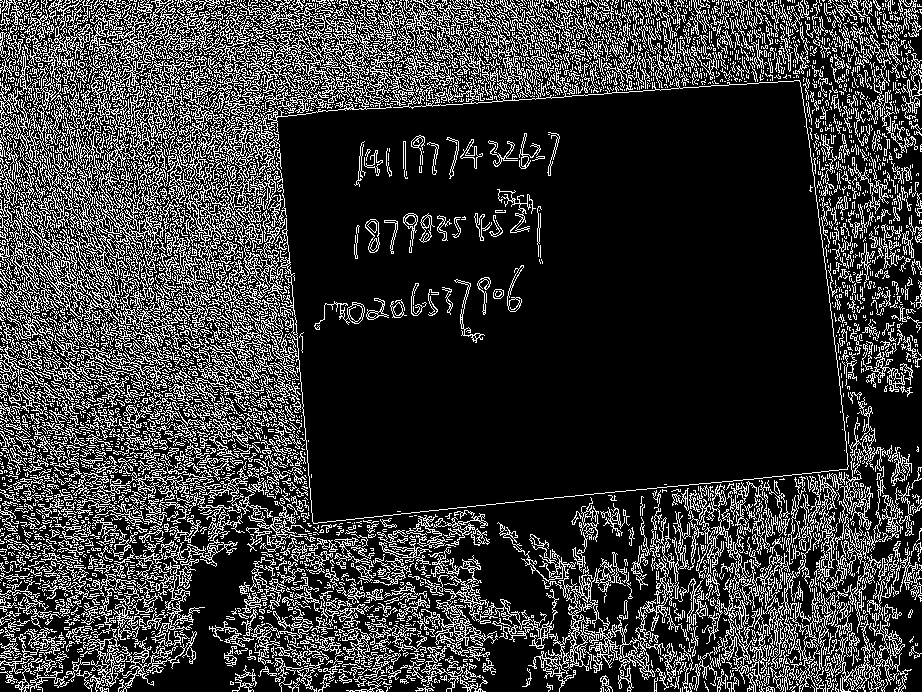 1411977432627
187983545521
0206537906